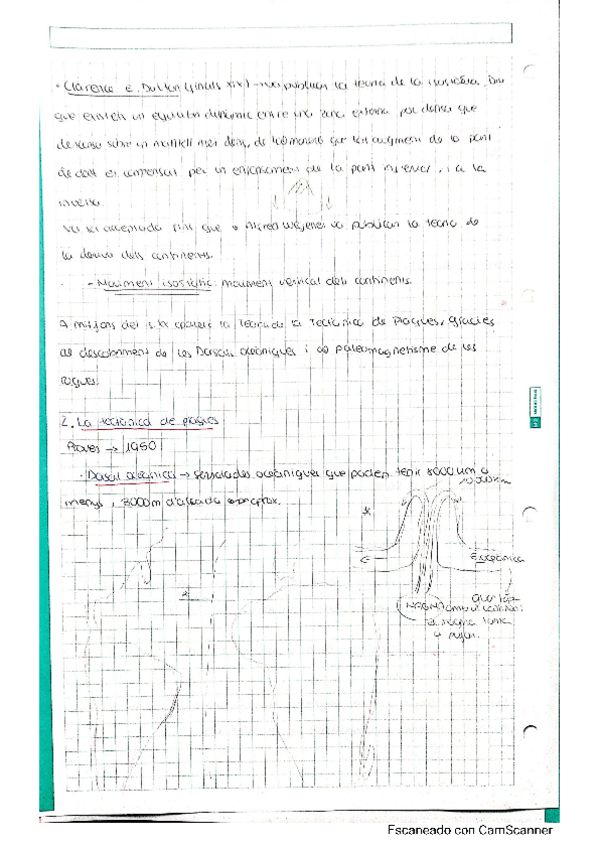 · Clarence E. Dutton (finals XIX) → va publicar la teoria de la isostàsia. Diu
que existeix un equilibri dinàmic entre una zona externa poc densa que
descansa sobre un mantell més dens, de tal manera que l'augment de la part
de dalt es compensat per un enfonsament de la part inferior, i a la
inversa.
Va ser acceptada fins que Alfred Wegener va publicar la teoria de
la deriva dels continents.
- Moviment isostàtic: moviment vertical dels continents.
A mitjans del s. XX apareix la Teoria de la Tectònica de Plaques, gràcies
al descobriment de les Dorsals oceàniques i al paleomagnetisme de les
roques.
2. La tectònica de plaques
Proves → 1950
· Dorsal oceànica → serralades oceàniques que poden tenir 8000 km o
10.000 km
menys i 3000m d'alçada aprox.
E. oceànica
MAGMA
el magma torna
a pujar.
Escaneado con CamScanner